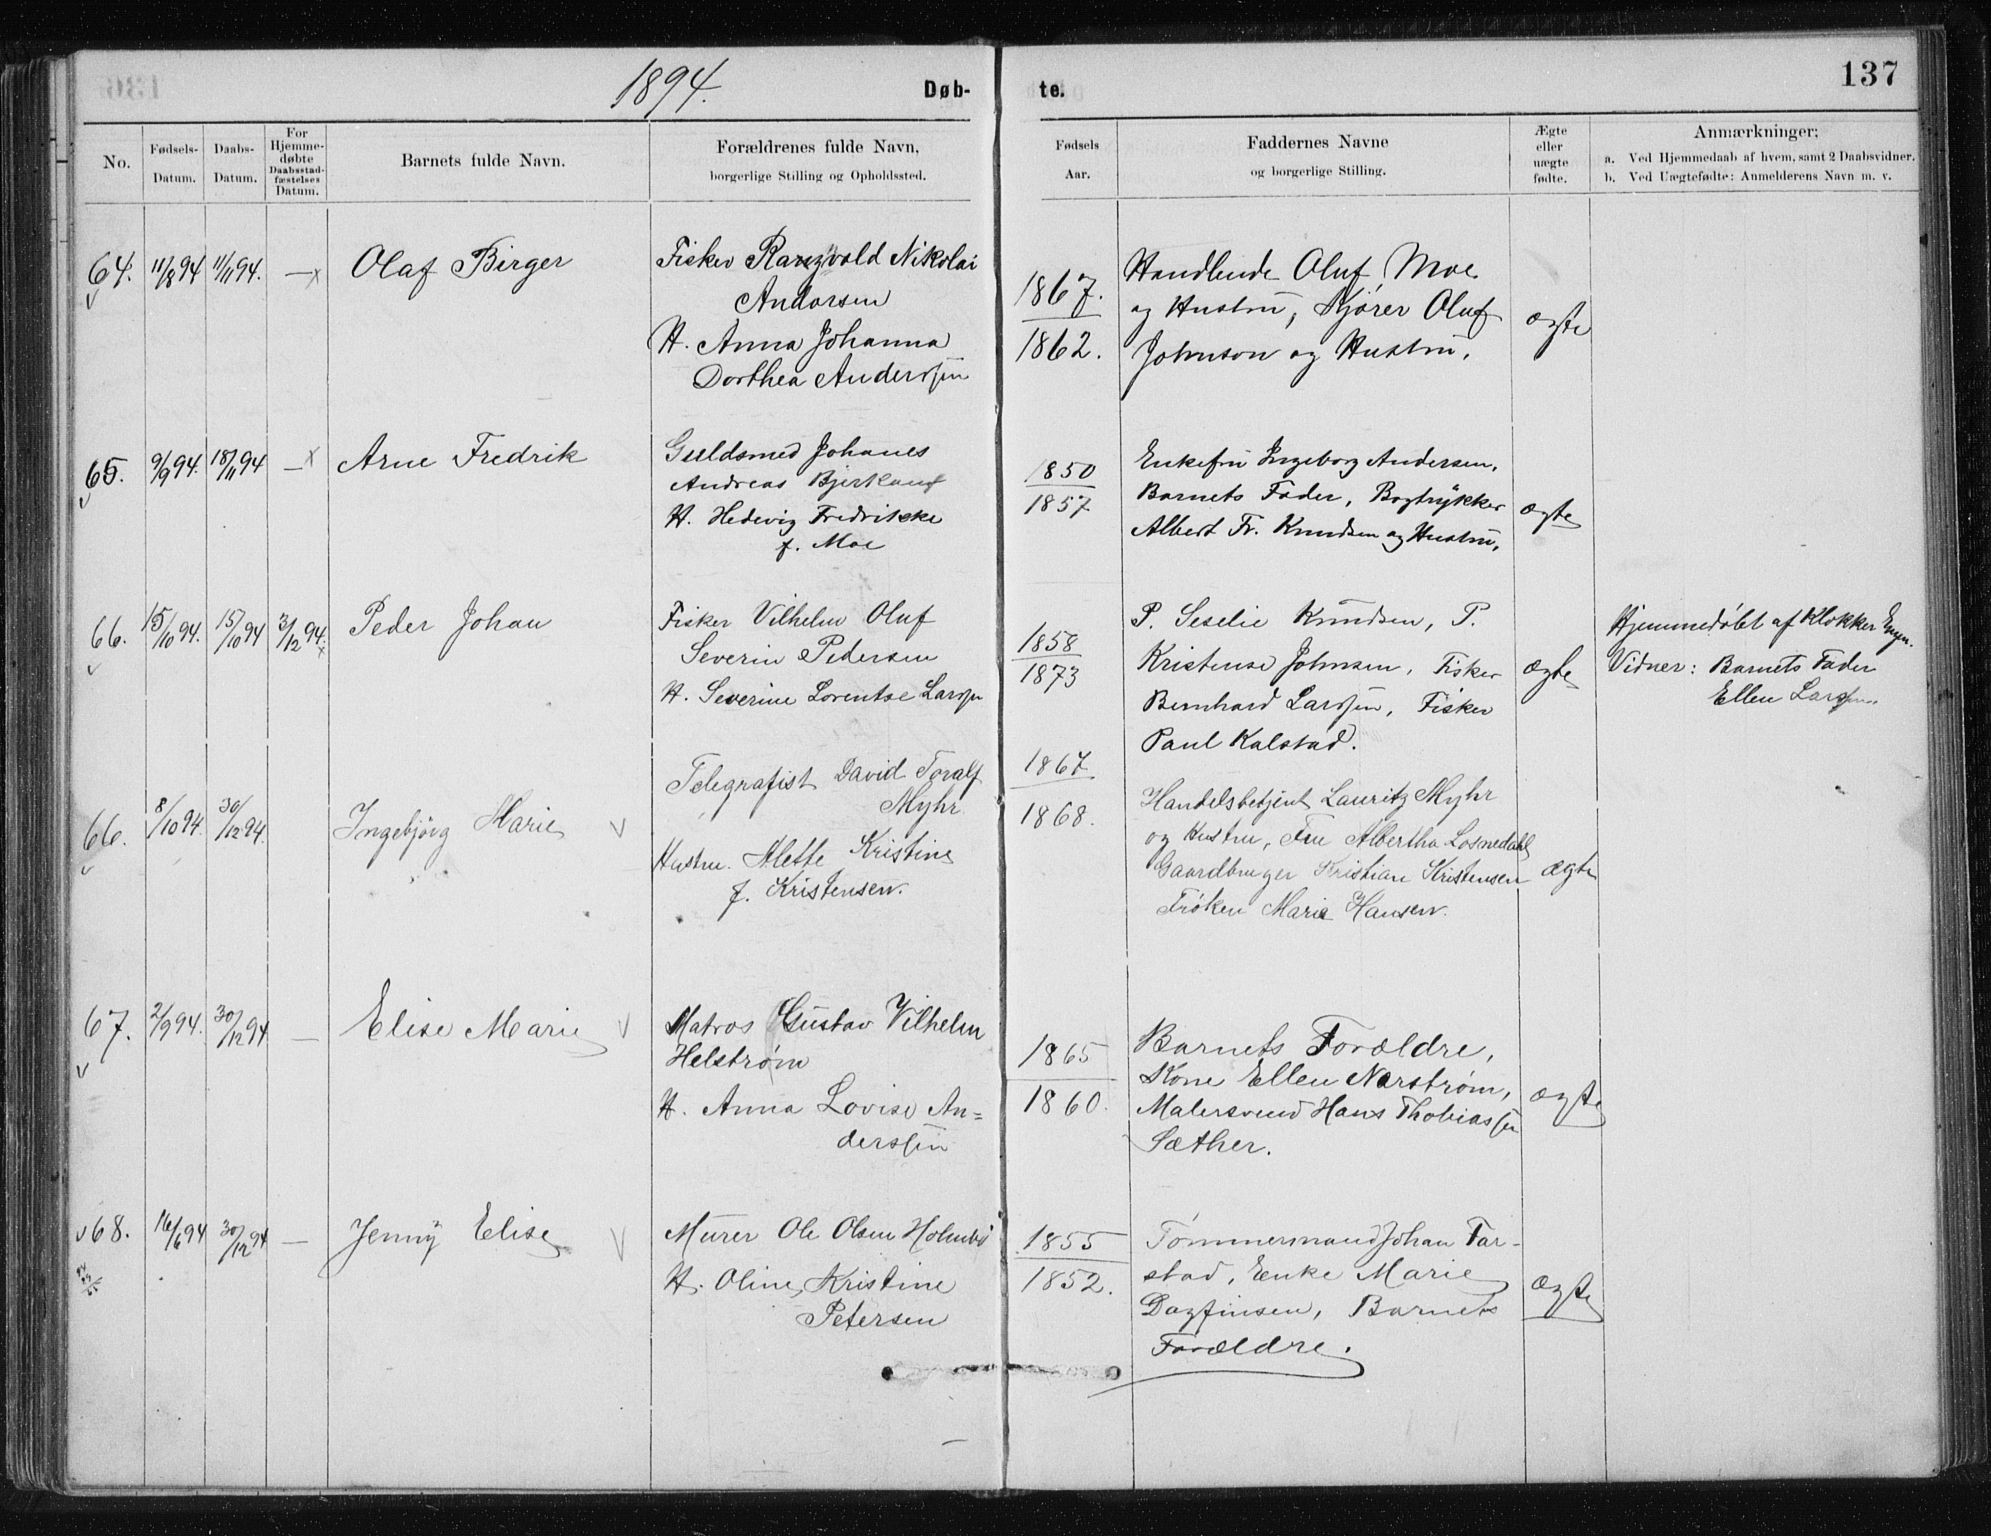 1894.
Døb-
te.
137
No.
Fødsels-
Datum.
Daabs-
Datum.
For
Hjemme-
døbte
Daabsstad-
fæstelses
Datum.
Barnets fulde Navn.
Forældrenes fulde Navn,
borgerlige Stilling og Opholdssted.
Fødsels
Aar.
Faddernes Navne
og borgerlige Stilling.
Ægte
eller
uægte
fødte.
Anmærkninger;
a. Ved Hjemmedaab af hvem, samt 2 Daabsvidner.
b. Ved Uægtefødte: Anmelderens Navn m. v.
64. 11/8 94 11/11 94. — x Olaf Birger
Fisker Rangvold Nikolai
Andorsen
H. Anna Johanna
Dorthea Anderssen
1867.
1862.
Handlende Oluf Moe
og Hustru, Kjører Oluf
Johnson og Hustru.
ægte
65. 9/9 94. 18/11 94 — x Arne Fredrik
Guldsmed Johanes
Andreas Bjerkan
H. Hedevig Fredrikke
f. Moe
1850
1857
Enkefru Ingeborg Andersen,
Barnets Fader, Bogtrykker
Albert Fr. Knudsen og Hustru.
ægte
66. 15/10 94. 15/10 94 3/12 94. x Peder Johan
Fisker Vilhelm Oluf
Severin Pedersen
H. Severine Lorentse Larssen
1858
1873
P. Seselie Knudsen, P.
Kristense Johnsen, Fisker
Bernhard Larssen, Fisker
Paul Kalstad.
ægte
Hjemmedøbt af Klokker
Vidner: Barnets Fader
Ellen Larssen.
66. 8/10 94. 30/12 94. Ingebjørg Marie
Telegrafist David Toralf
Myhr
Hustru. Alette Kristine
f. Kristensen.
1867
1868.
Handelsbetjent Lauritz Myhr
og Hustru, Fru Albertha Losnedahl
Gaardbruger Kristian Kristensen
Frøken Marie Hansen.
ægte
67. 2/9 94. 30/12 94 — Elise Marie
Matros Gustav Vilhelm
Helstrøm
H. Anna Lovise An=
derssen
1865
1860.
Barnets Forældre,
Kone Ellen Norstrøm,
Malersvend Hans Thobiassen
Sæther.
ægte
68. 16/6 94 30/12 94 — Jenny Elise
Murer Ole Olsen Holmbo
H. Oline Kristine
Petersen
1855
1852.
Tømmermand Johan Far-
stad, Enke Marie
Dagfinsen, Barnets
Forældre.
ægte